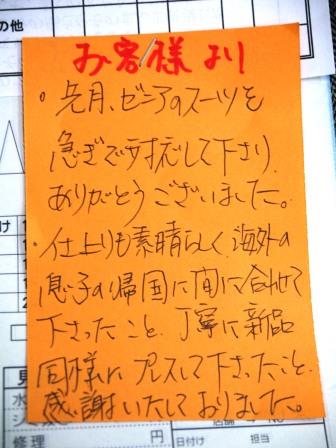 の他
お客様より
。先月、ゼニアのスーツを
急ぎで対応して下さり
ありがとうございました。
・仕上りも素晴らしく、海外の
息子の帰国に間に合わせて
下さったこと、丁寧に新品
同様にプレスして下さったこと
感謝いたしておりました。
け
見
水
シ
修理
円
日付け